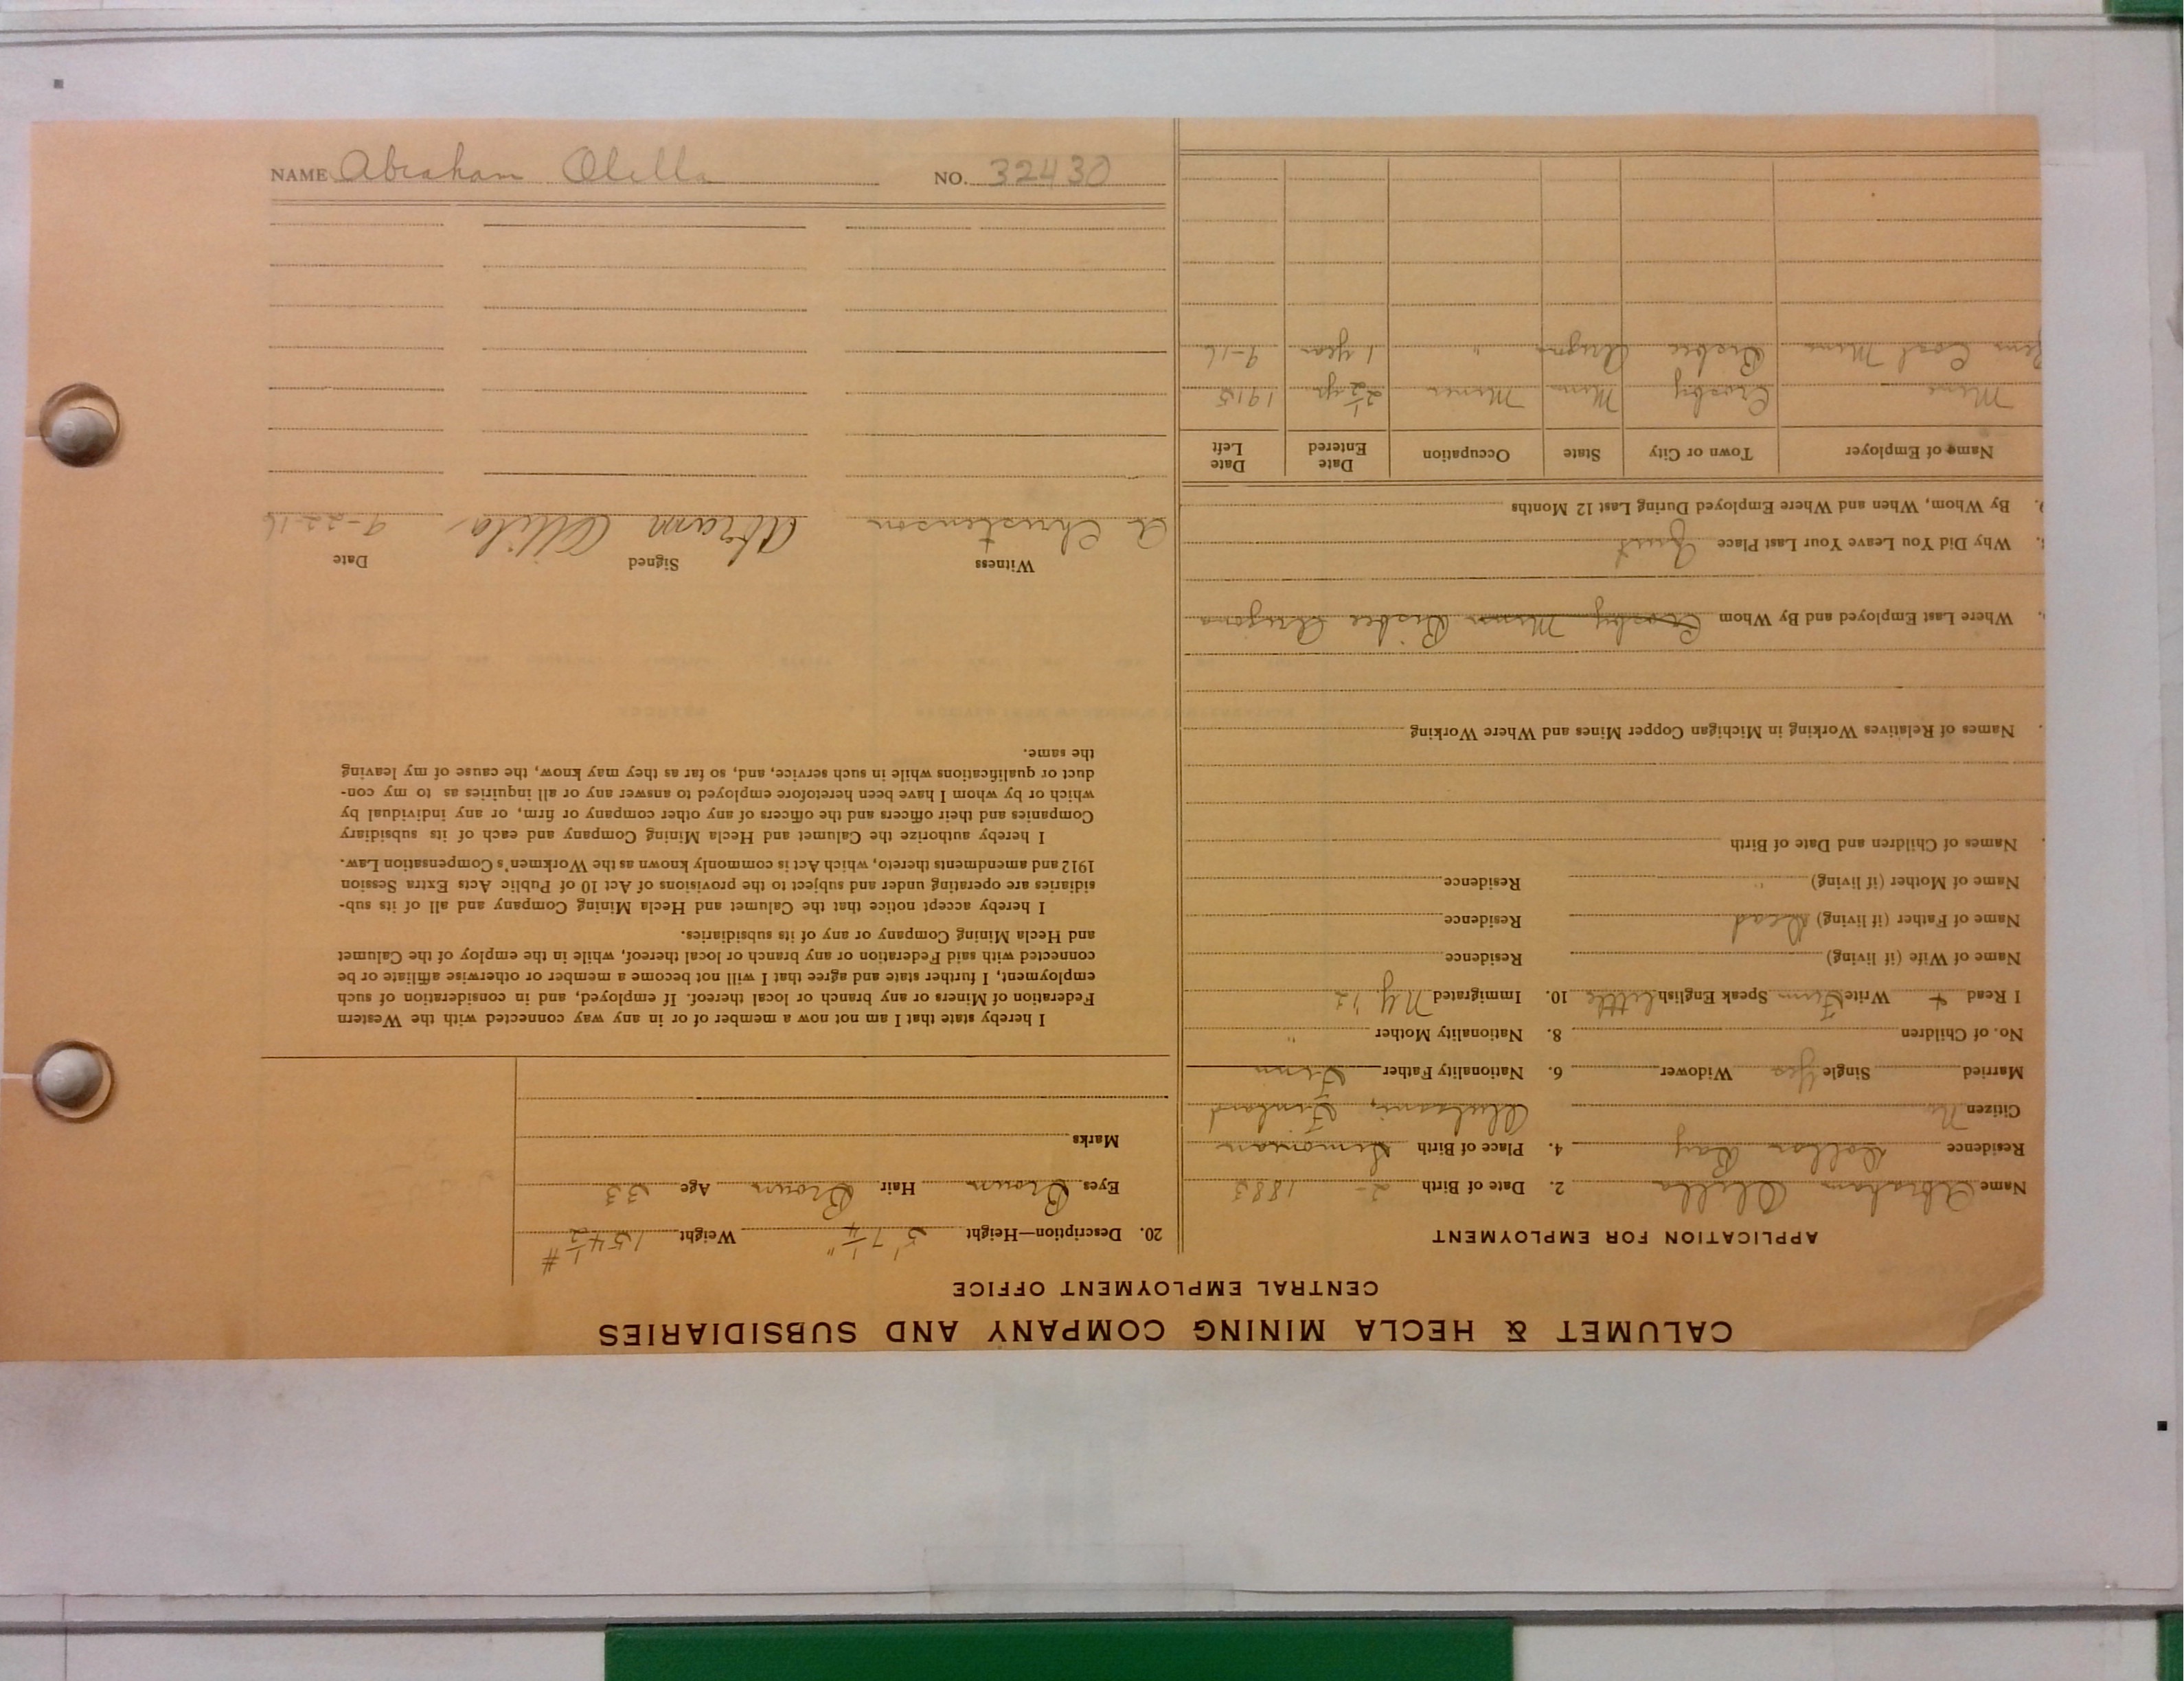 NAME Abraham Olella NO. 32430
CALUMET & HECLA MINING COMPANY AND SUBSIDIARIES
CENTRAL EMPLOYMENT OFFICE
APPLICATION FOR EMPLOYMENT
Name Abraham Olella 2. Date of Birth 2- 1883
Residence Dollar Bay 4. Place of Birth
Citizen No Finland
Married Single Yes Widower 6. Nationality Father Finn
No. of Children 8. Nationality Mother "
I Read + Write Finn Speak English little 10. Immigrated N.y. 12
Name of Wife (if living) Residence
Name of Father (if living) Dead Residence
Name of Mother (if living) " Residence
Names of Children and Date of Birth
Names of Relatives Working in Michigan Copper Mines and Where Working
Where Last Employed and By Whom Crosby Minn Bisbee
Why Did You Leave Your Last Place Quit
By Whom, When and Where Employed During Last 12 Months
Name of Employer Town or City State Occupation Date Entered Date Left
Mine Crosby Minn Miner 2½ yr 1915
Mine Bisbee " 1 year 9-16
20. Description—Height 5' 7¼" Weight 154½ #
Eyes Brown Hair Brown Age 33
Marks
I hereby state that I am not now a member of or in any way connected with the Western
Federation of Miners or any branch or local thereof. If employed, and in consideration of such
employment, I further state and agree that I will not become a member or otherwise affiliate or be
connected with said Federation or any branch or local thereof, while in the employ of the Calumet
and Hecla Mining Company or any of its subsidiaries.
I hereby accept notice that the Calumet and Hecla Mining Company and all of its sub-
sidiaries are operating under and subject to the provisions of Act 10 of Public Acts Extra Session
1912 and amendments thereto, which Act is commonly known as the Workmen's Compensation Law.
I hereby authorize the Calumet and Hecla Mining Company and each of its subsidiary
Companies and their officers and the officers of any other company or firm, or any individual by
which or by whom I have been heretofore employed to answer any or all inquiries as to my con-
duct or qualifications while in such service, and, so far as they may know, the cause of my leaving
the same.
Witness Signed Date
A Christenson Abram 9-22-16